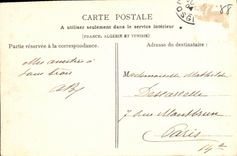 CARTE POSTALE
A utiliser seulement dans le service intérieur
(FRANCE, ALGERIE ET TUNISIE)
Partie réservée à la correspondance.
Adresse du destinataire :
Mes amitiés à
tous trois
Mademoiselle Mathilde
7 rue
Paris
14e
88